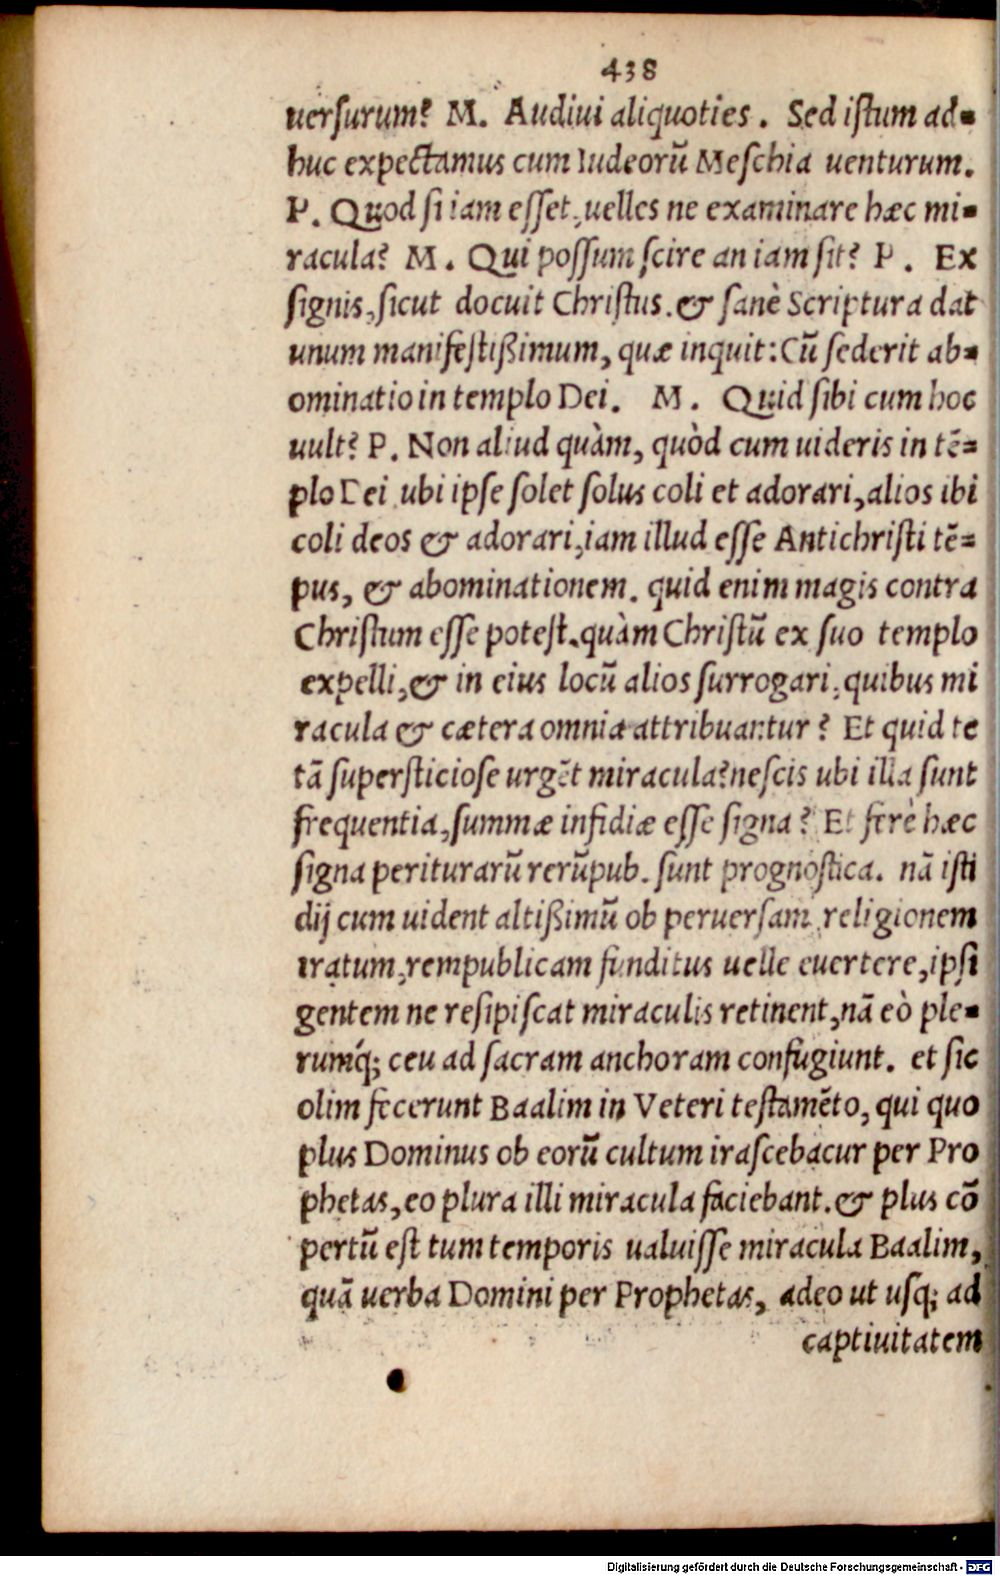 438
uerſurum? M. Audiui aliquoties. Sed iſtum ad=
huc expectamus cum Iudeorũ Meſchia uenturum.
P. Quod ſi iam eſſet, uelles ne examinare hæc mi=
racula? M. Qui poſſum ſcire an iam ſit? P. Ex
ſignis, ſicut docuit Chriſtus. & ſanè Scriptura dat
unum manifeſtißimum, quæ inquit: Cũ ſederit ab=
ominatio in templo Dei. M. Quid ſibi cum hoc
uult? P. Non aliud quàm, quòd cum uideris in tẽ=
plo Dei ubi ipſe ſolet ſolus coli et adorari, alios ibi
coli deos & adorari, iam illud eſſe Antichriſti tẽ=
pus, & abominationem. quid enim magis contra
Chriſtum eſſe poteſt. quàm Chriſtũ ex ſuo templo
expelli, & in eius locũ alios ſurrogari, quibus mi
racula & cætera omnia attribuantur? Et quid te
tã ſuperſticioſe urgẽt miracula? neſcis ubi illa ſunt
frequentia, ſummæ infidiæ eſſe ſigna? Et ferè hæc
ſigna periturarũ rerũpub. ſunt prognoſtica. nã iſti
dij cum uident altißimũ ob peruerſam religionem
iratum, rempublicam funditus uelle euertere, ipſi
gentem ne reſipiſcat miraculis retinent, nã eò ple=
rumq́; ceu ad ſacram anchoram confugiunt. et ſic
olim fecerunt Baalim in Veteri teſtamẽto, qui quo
plus Dominus ob eorũ cultum iraſcebacur per Pro
phetas, eo plura illi miracula faciebant. & plus cõ
pertũ eſt tum temporis ualuiſſe miracula Baalim,
quã uerba Domini per Prophetas, adeo ut uſq; ad
captiuitatem
Digitalisierung gefördert durch die Deutsche Forschungsgemeinschaft - DFG